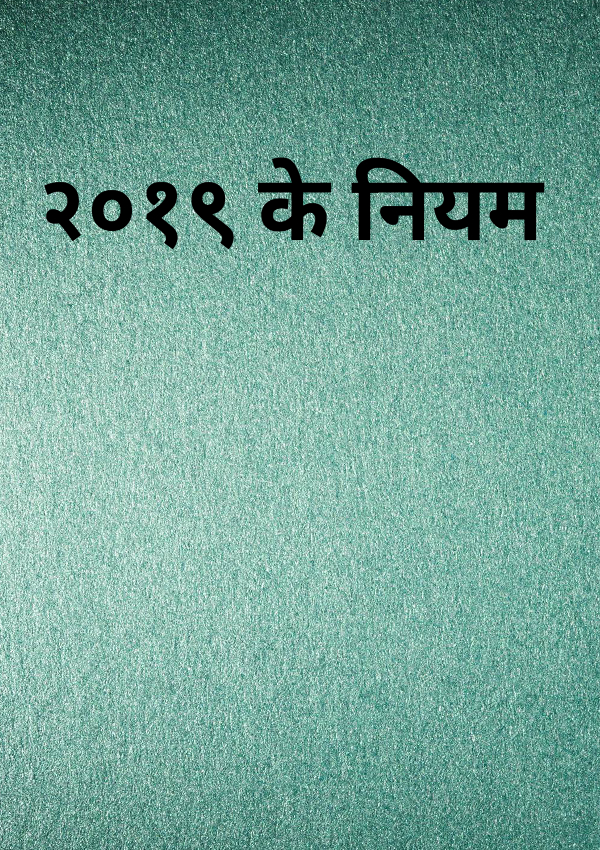 २०१९ के नियम